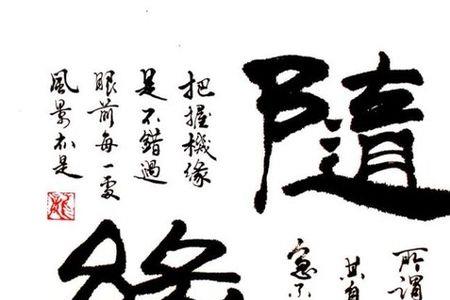 隨
所謂
其自
急不
把握機緣
是不錯過
眼前每一處
風景亦是